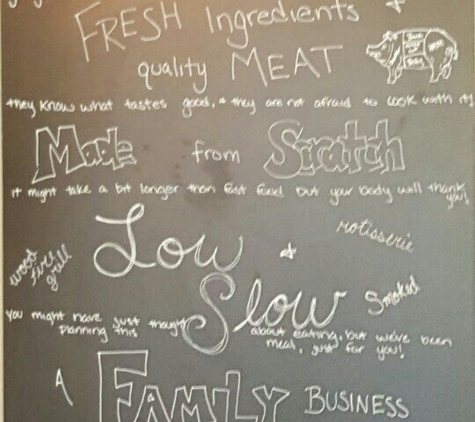 FRESH Ingredients &
quality MEAT
they know what tastes good, & they are not afraid to cook with it!
Made from Scratch
it might take a bit longer than fast food but your body will thank you!
Low &
rotisserie
wood fire grill
Slow
Smoked
You might have just thought about eating, but we've been
planning this meal, just for you!
A FAMILY BUSINESS